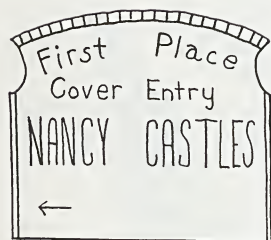 First Place
Cover Entry
NANCY CASTLES
←